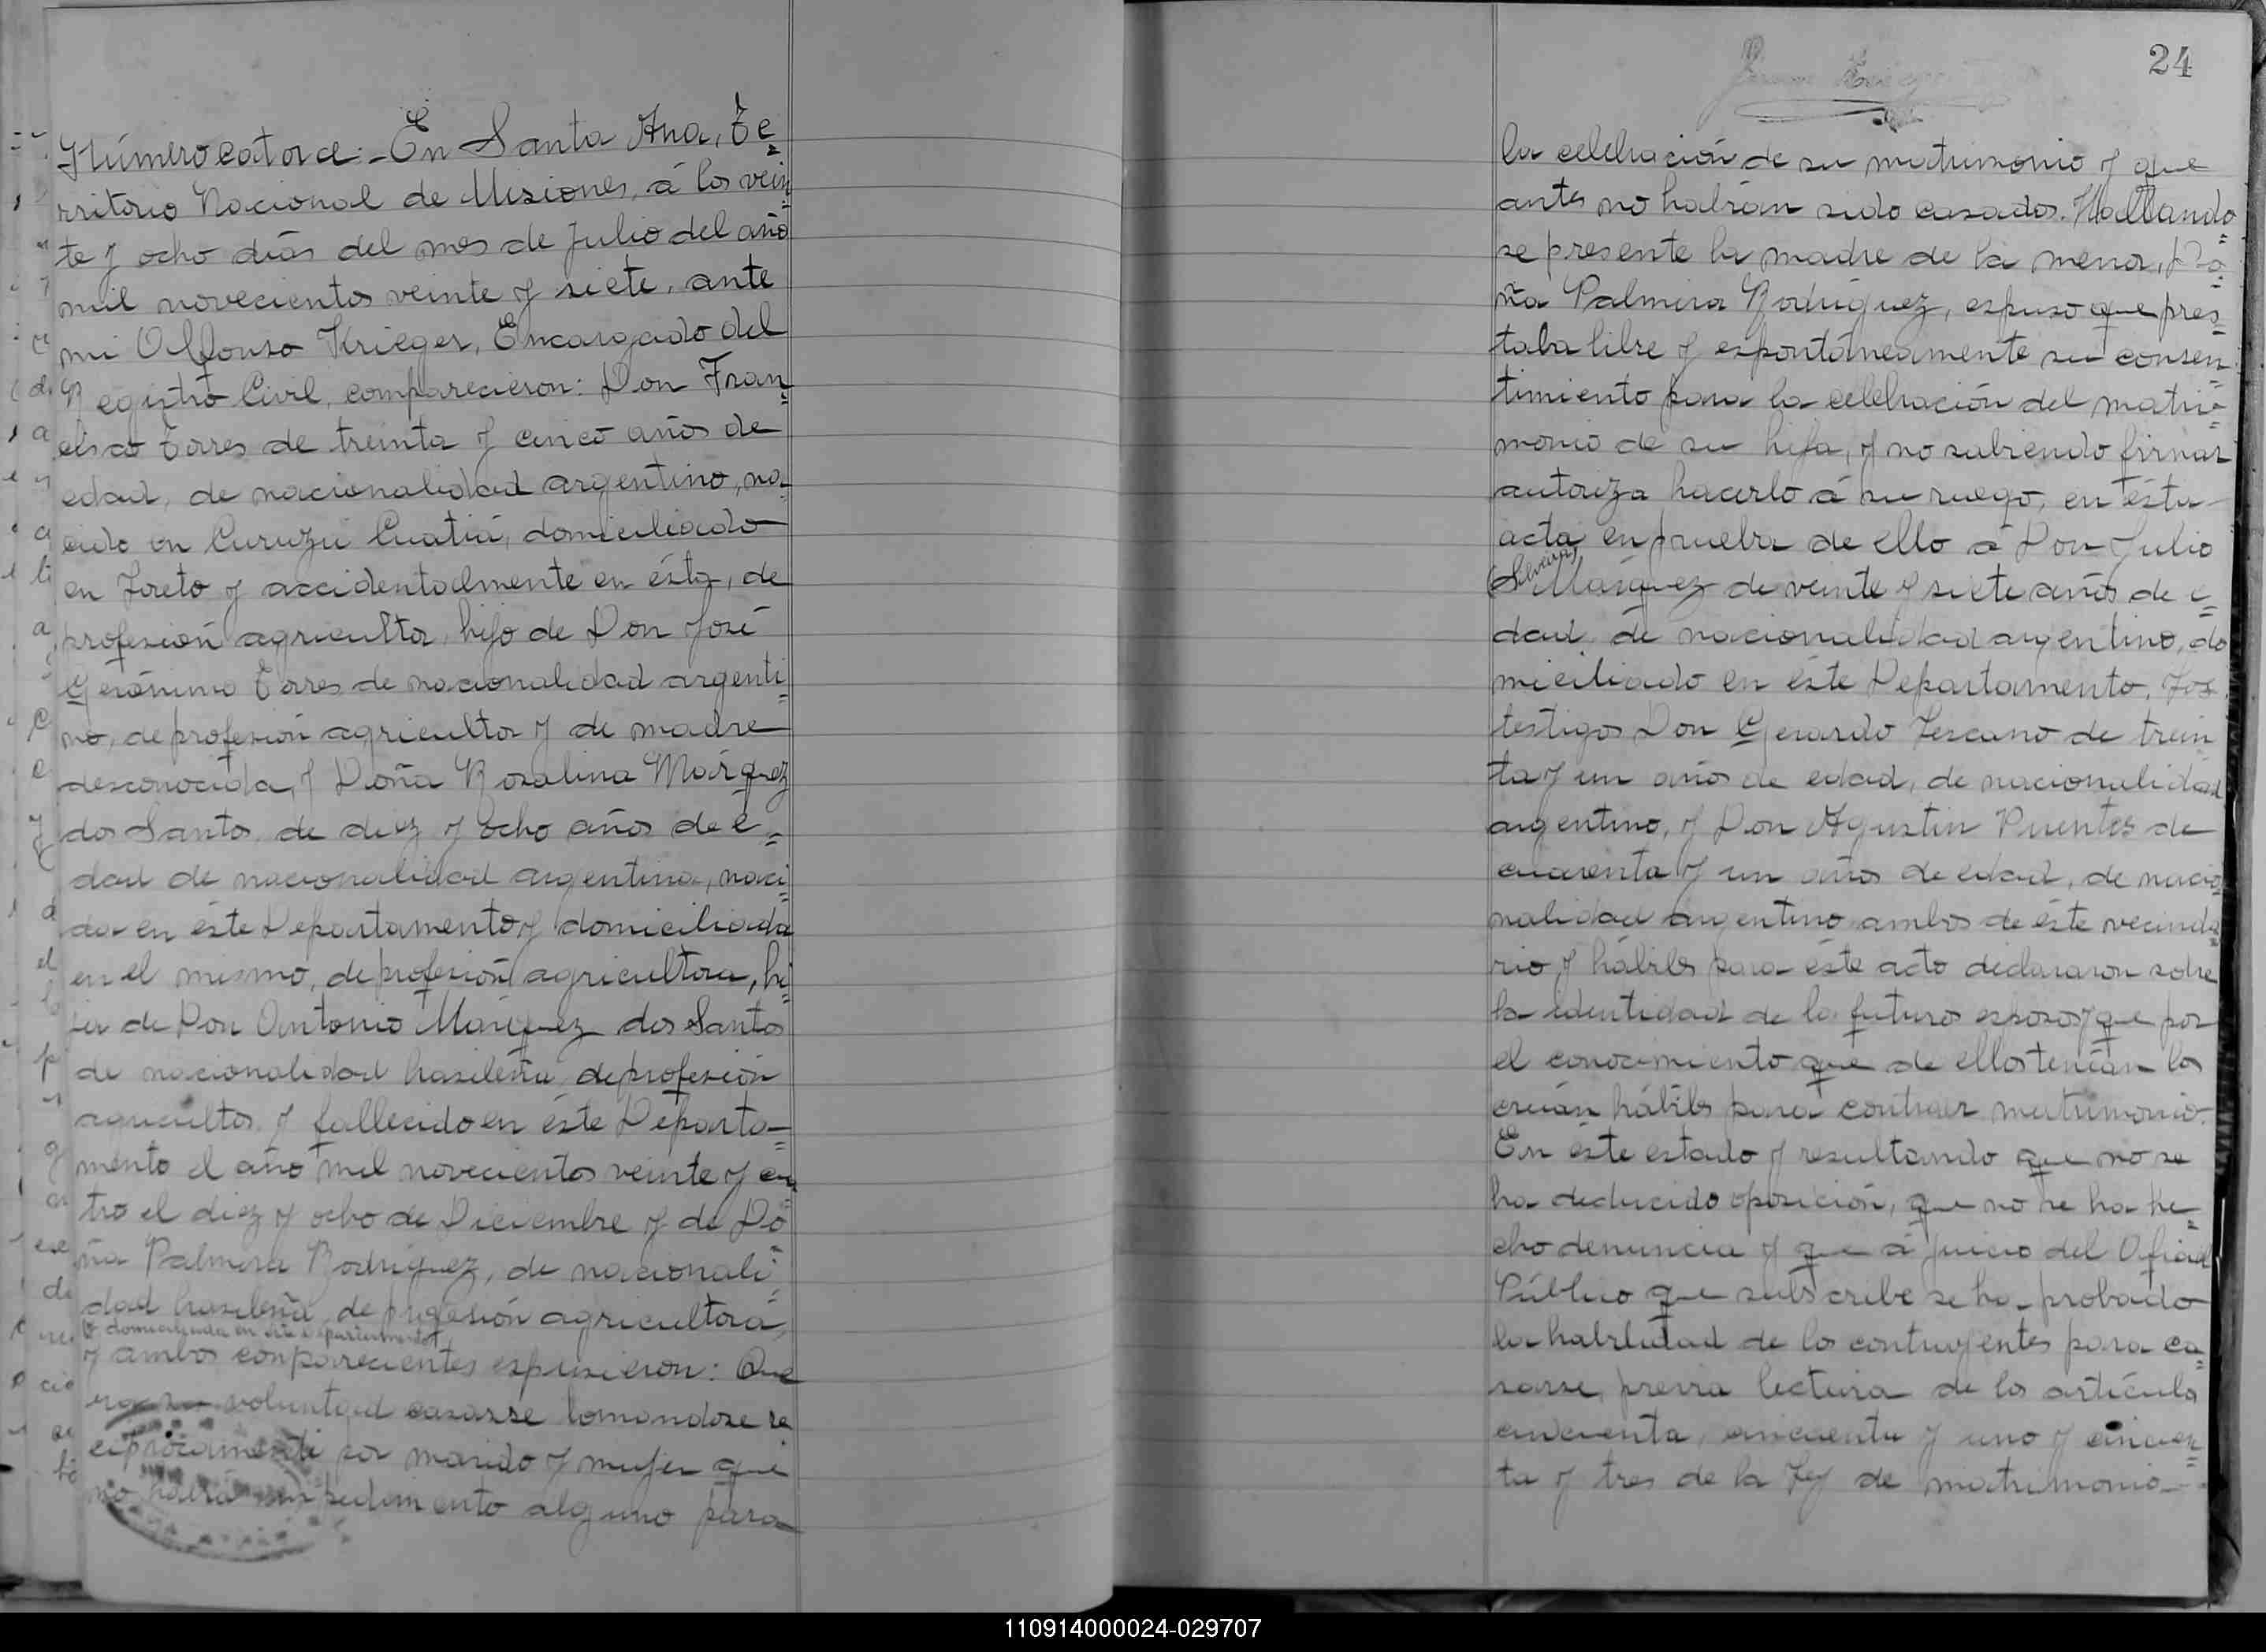 Número catorce:- En Santa Ana, Te=
rritorio Nacional de Misiones, á los vein=
te y ocho días del mes de Julio del año
mil novecientos veinte y siete, ante
mi Alfonso Krieger, Encargado del
Registro Civil, comparecieron: Don Fran=
cisco Torres de treinta y cinco años de
edad, de nacionalidad argentino, na=
cido en Curuzú Cuatiá, domiciliado
en Loreto y accidentalmente en ésta, de
profesión agricultor, hijo de Don José
Gerónimo Torres de nacionalidad argenti=
no, de profesión agricultor y de madre
desconocida, y Doña Rosalina Márquez
dos Santos, de diez y ocho años de e=
dad de nacionalidad argentina, naci=
da en éste Departamento y domiciliada
en el mismo, de profesión agricultora, hi=
ja de Don Antonio Márquez dos Santos
de nacionalidad brasileña, de profesión
agricultor, y fallecido en éste Departa=
mento el año mil novecientos veinte y cua
tro el diez y ocho de Diciembre y de Do=
ña Palmira Rodríguez, de nacionali=
dad brasileña, de profesión agricultora,
domiciliada en éste Departamento
y ambos conparecientes espusieron: Que
era su voluntad casarse tomandose re
ciprocamente por marido y mujer que
no había impedimento alguno para
24
la celebración de su matrimonio y que
antes no habían sido casados. Hallando=
se presente la madre de la menor, Do=
ña Palmira Rodríguez, espuso que pres=
taba libre y espontáneamente su consen=
timiento para la celebración del matri=
monio de su hija, y no sabiendo firmar
autoriza hacerlo á su ruego, en ésta
acta, en prueba de ello á Don Julio
Márquez de veinte y siete años de e=
dad, de nacionalidad argentino, do
miciliado en éste Departamento. Los
testigos Don Gerardo Lescano de trein
ta y un años de edad, de nacionalidad
argentino, y Don Agustin Puentes de
cuarenta y un años de edad, de nacio=
nalidad argentino ambos de éste vecinda=
rio y hábiles para éste acto declararon sobre
la identidad de los futuros esposos y que por
el conocimiento que de ellos tenían los
creían hábiles para contraer matrimonio.
En éste estado y resultando que no se
ha deducido oposición, que no se ha he=
cho denuncia y que á juicio del Oficial
Público que subscribe se ha probado
la habilidad de los contrayentes para ca=
sarse, previa lectura de los artículos
cincuenta, cincuenta y uno y cincuen=
ta y tres de la Ley de matrimonio
110914000024-029707